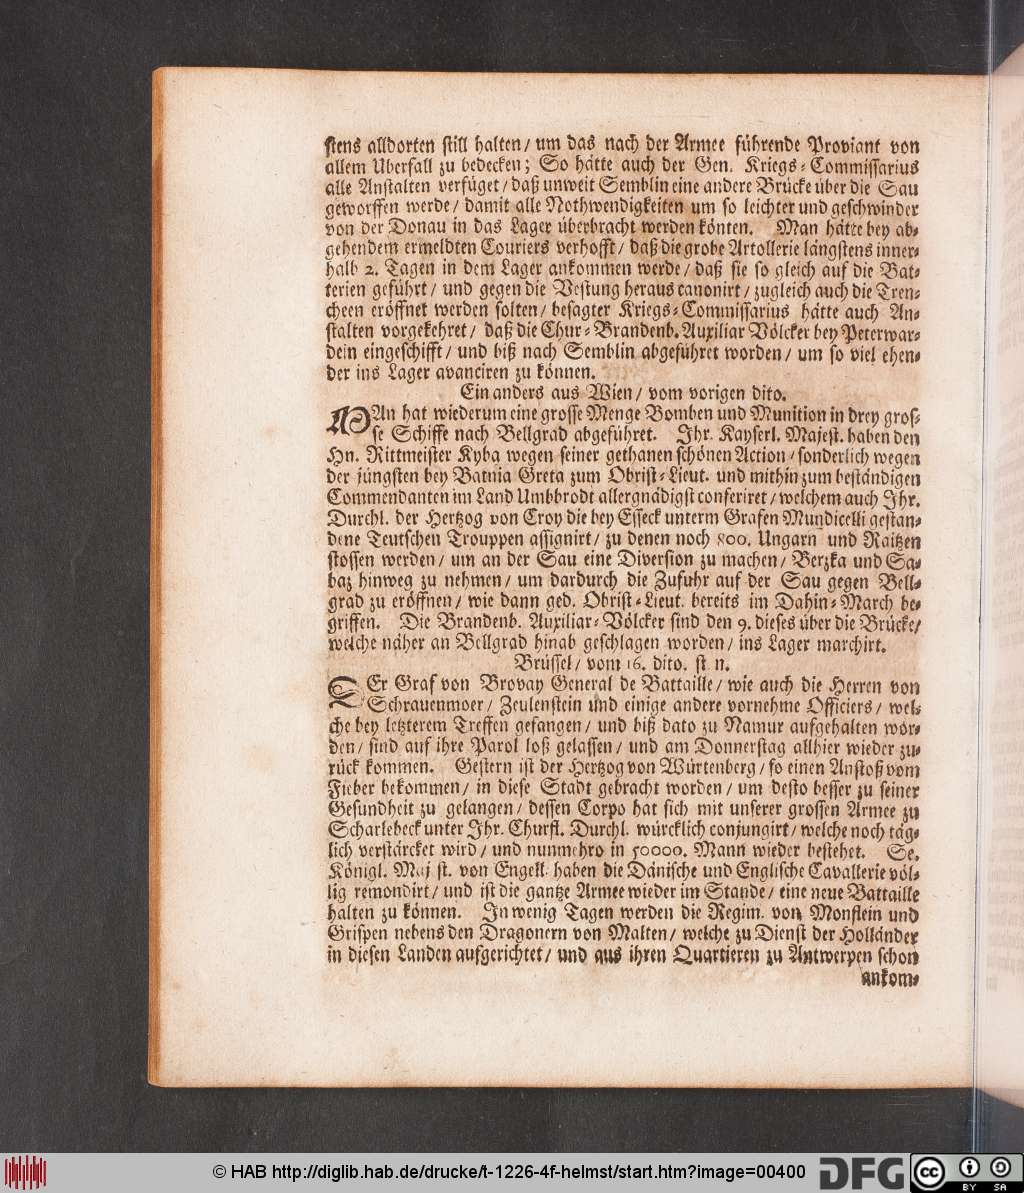 stens alldorten still halten / um das nach der Armee führende Proviant von
allem Uberfall zu bedecken; So hätte auch der Gen. Kriegs-Commissarius
alle Anstalten verfüget / daß unweit Semblin eine andere Brücke über die Sau
geworffen werde / damit alle Nothwendigkeiten um so leichter und geschwinder
von der Donau in das Lager überbracht werden könten. Man hätte bey ab-
gehendem ermeldten Couriers verhofft / daß die grobe Artollerie längstens inner-
halb 2. Tagen in dem Lager ankommen werde / daß sie so gleich auf die Bat-
terien geführt / und gegen die Vestung heraus canonirt / zugleich auch die Tren-
cheen eröffnet werden solten / besagter Kriegs-Commissarius hätte auch An-
stalten vorgekehret / daß die Chur-Brandenb. Auxiliar Völcker bey Peterwar-
dein eingeschifft / und biß nach Semblin abgeführet worden / um so viel ehen-
der ins Lager avanciren zu können.
Ein anders aus Wien / vom vorigen dito.
MAn hat wiederum eine grosse Menge Bomben und Munition in drey gros-
se Schiffe nach Bellgrad abgeführet. Ihr. Kayserl. Majest. haben den
Hn. Rittmeister Kyba wegen seiner gethanen schönen Action / sonderlich wegen
der jüngsten bey Batnia Greta zum Obrist-Lieut. und mithin zum beständigen
Commendanten im Land Umbbrodt allergnädigst conferiret / welchem auch Ihr.
Durchl. der Hertzog von Croy die bey Esseck unterm Grafen Mundicelli gestan-
dene Teutschen Trouppen assignirt / zu denen noch 800. Ungarn und Raitzen
stossen werden / um an der Sau eine Diversion zu machen / Berzka und Sa-
baz hinweg zu nehmen / um dardurch die Zufuhr auf der Sau gegen Bell-
grad zu eröffnen / wie dann ged. Obrist-Lieut. bereits im Dahin-March be-
griffen. Die Brandenb. Auxiliar-Völcker sind den 9. dieses über die Brücke /
welche näher an Bellgrad hinab geschlagen worden / ins Lager marchirt.
Brüssel / vom 16. dito. st. n.
DEr Graf von Brovay General de Battaille / wie auch die Herren von
Schrauenmoer / Zeulenstein und einige andere vornehme Officiers / wel-
che bey letzterem Treffen gefangen / und biß dato zu Namur aufgehalten wor-
den / sind auf ihre Parol loß gelassen / und am Donnerstag allhier wieder zu-
rück kommen. Gestern ist der Hertzog von Würtenberg / so einen Anstoß vom
Fieber bekommen / in diese Stadt gebracht worden / um desto besser zu seiner
Gesundheit zu gelangen / dessen Corpo hat sich mit unserer grossen Armee zu
Scharlebeck unter Ihr. Churfl. Durchl. würcklich conjungirt / welche noch täg-
lich verstärcket wird / und nunmehro in 50000. Mann wieder bestehet. Se.
Königl. Maj st. von Engell. haben die Dänische und Englische Cavallerie völ-
lig remondirt / und ist die gantze Armee wieder im Stande / eine neue Battaille
halten zu können. In wenig Tagen werden die Regim. von Monflein und
Grispen nebens den Dragonern von Malten / welche zu Dienst der Holländer
in diesen Landen aufgerichtet / und aus ihren Quartieren zu Antwerpen schon
ankom-
© HAB http://diglib.hab.de/drucke/t-1226-4f-helmst/start.htm?image=00400
DFG
cc BY SA